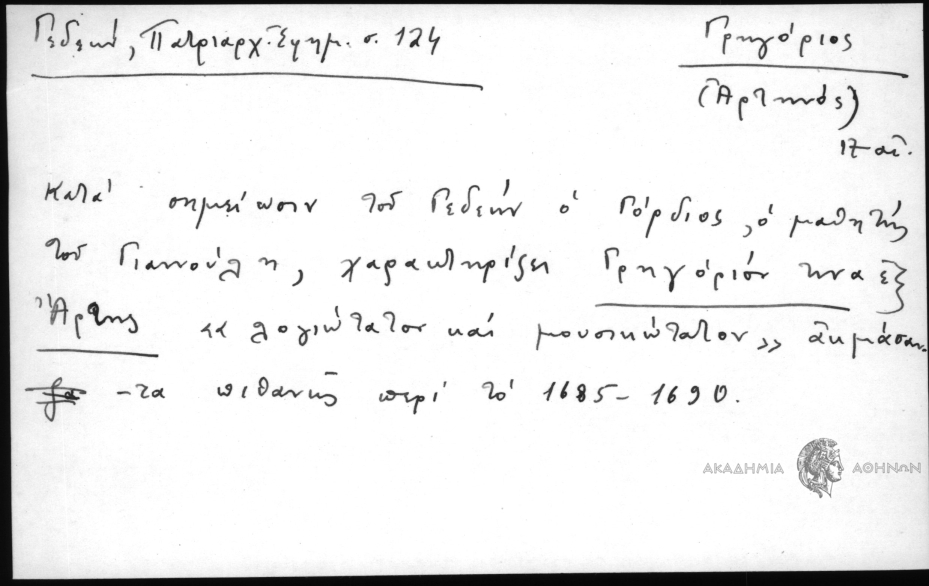 Γεδεών, Πατριαρχ. Ἐφημ. σ. 124
Γρηγόριος
(Ἀρτηνός)
17 αἰ.
Κατά σημείωσιν τοῦ Γεδεών ὁ Γόρδιος, ὁ μαθητής
τοῦ Γιαννούλη, χαρακτηρίζει Γρηγόριόν τινα ἐξ
Ἄρτης «λογιώτατον καί μουσικώτατον» ἀκμάσαν-
-τα πιθανῶς περί τό 1685-1690.
ΑΚΑΔΗΜΙΑ ΑΘΗΝΩΝ